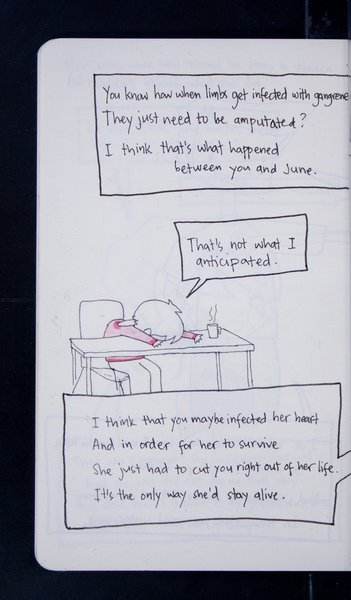 You know how when limbs get infected with gangrene
They just need to be amputated?
I think that's what happened
between you and June.
That's not what I
anticipated.
I think that you maybe infected her heart
And in order for her to survive
She just had to cut you right out of her life.
It's the only way she'd stay alive.